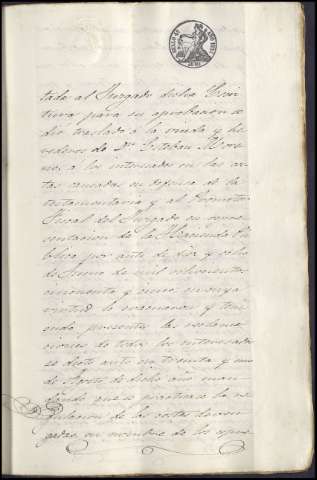 tada al Juzgado dicha Escri
tura para su aprobacion se
dio traslado á la viuda y he
rederos de Dn. Esteban More
no, a los interesados en las cos
tas causadas su defensa al de
testamentaria y al Promotor
Fiscal del Juzgado en repre
sentacion de la Hacienda Pú
blica por auto de diez y ocho
de Junio de mil ochocientos
cincuenta y nueve en cuya
virtud lo evacuaron y teni
endo presentes las
ciones de todos los interesados
se dictó auto en treinta y uno
de Agosto de dicho año man
dando que se practicase la re
gulacion de las costas deven
gadas en nombre de los espre